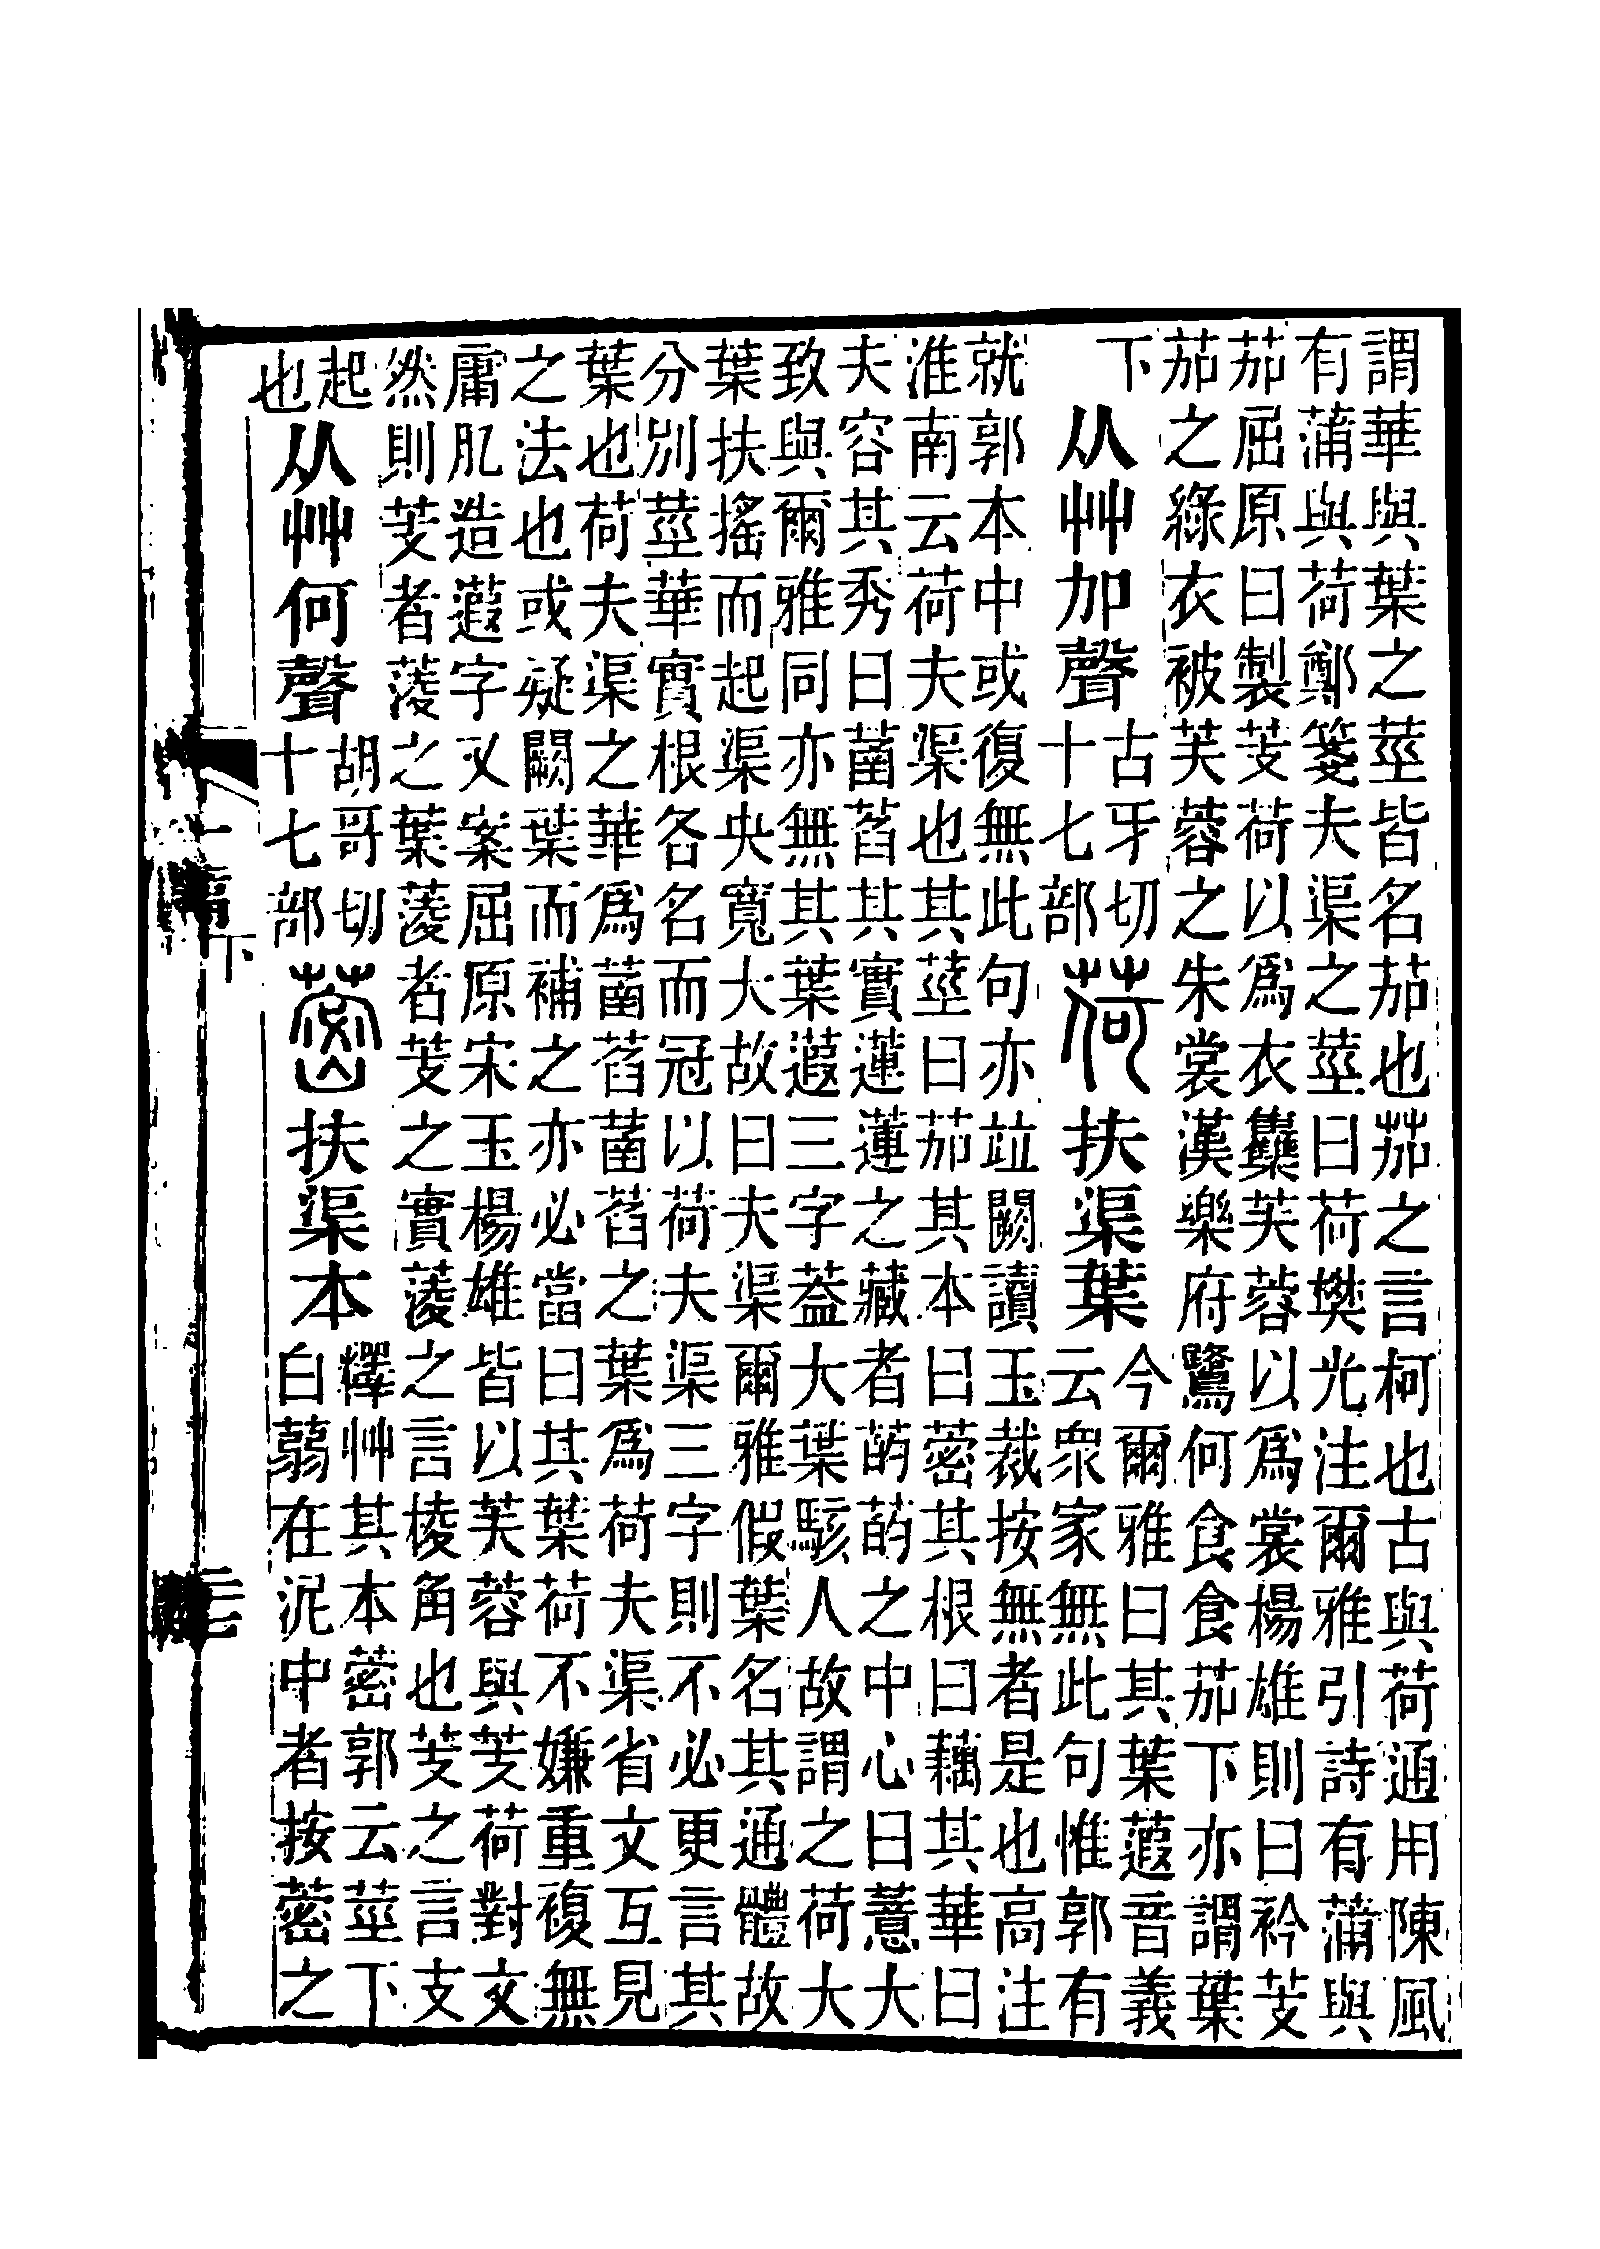 謂華與葉之莖皆名茄也茄之言柯也古與荷通用陳風
有蒲與荷鄭箋夫渠之莖曰荷樊光注爾雅引詩有蒲與
茄屈原曰製芰荷以爲衣雧芙蓉以爲裳楊雄則曰衿芰
茄之綠衣被芙蓉之朱裳漢樂府鷺何食食茄下亦謂葉
下
从艸加聲
古牙切
十七部
荷扶渠葉
今爾雅曰其葉蕸音義
云衆家無此句惟郭有
就郭本中或復無此句亦竝闕讀玉裁按無者是也高注
淮南云荷夫渠也其莖曰茄其本曰蔤其根曰藕其華曰
夫容其秀曰菡萏其實蓮蓮之藏者菂菂之中心曰薏大
致與爾雅同亦無其葉蕸三字葢大葉駭人故謂之荷大
葉扶搖而起渠央寬大故曰夫渠爾雅假葉名其通體故
分別莖華實根各名而冠以荷夫渠三字則不必更言其
葉也荷夫渠之華爲菡萏菡萏之葉爲荷夫渠省文互見
之法也或疑闕葉而補之亦必當曰其葉荷不嫌重複無
庸肊造蕸字又案屈原宋玉楊雄皆以芙蓉與芰荷對文
然則芰者蔆之葉蔆者芰之實蔆之言棱角也芰之言支
起
也
从艸何聲
胡哥切
十七部
蔤扶渠本
釋艸其本蔤郭云莖下
白蒻在泥中者按蔤之
一篇下